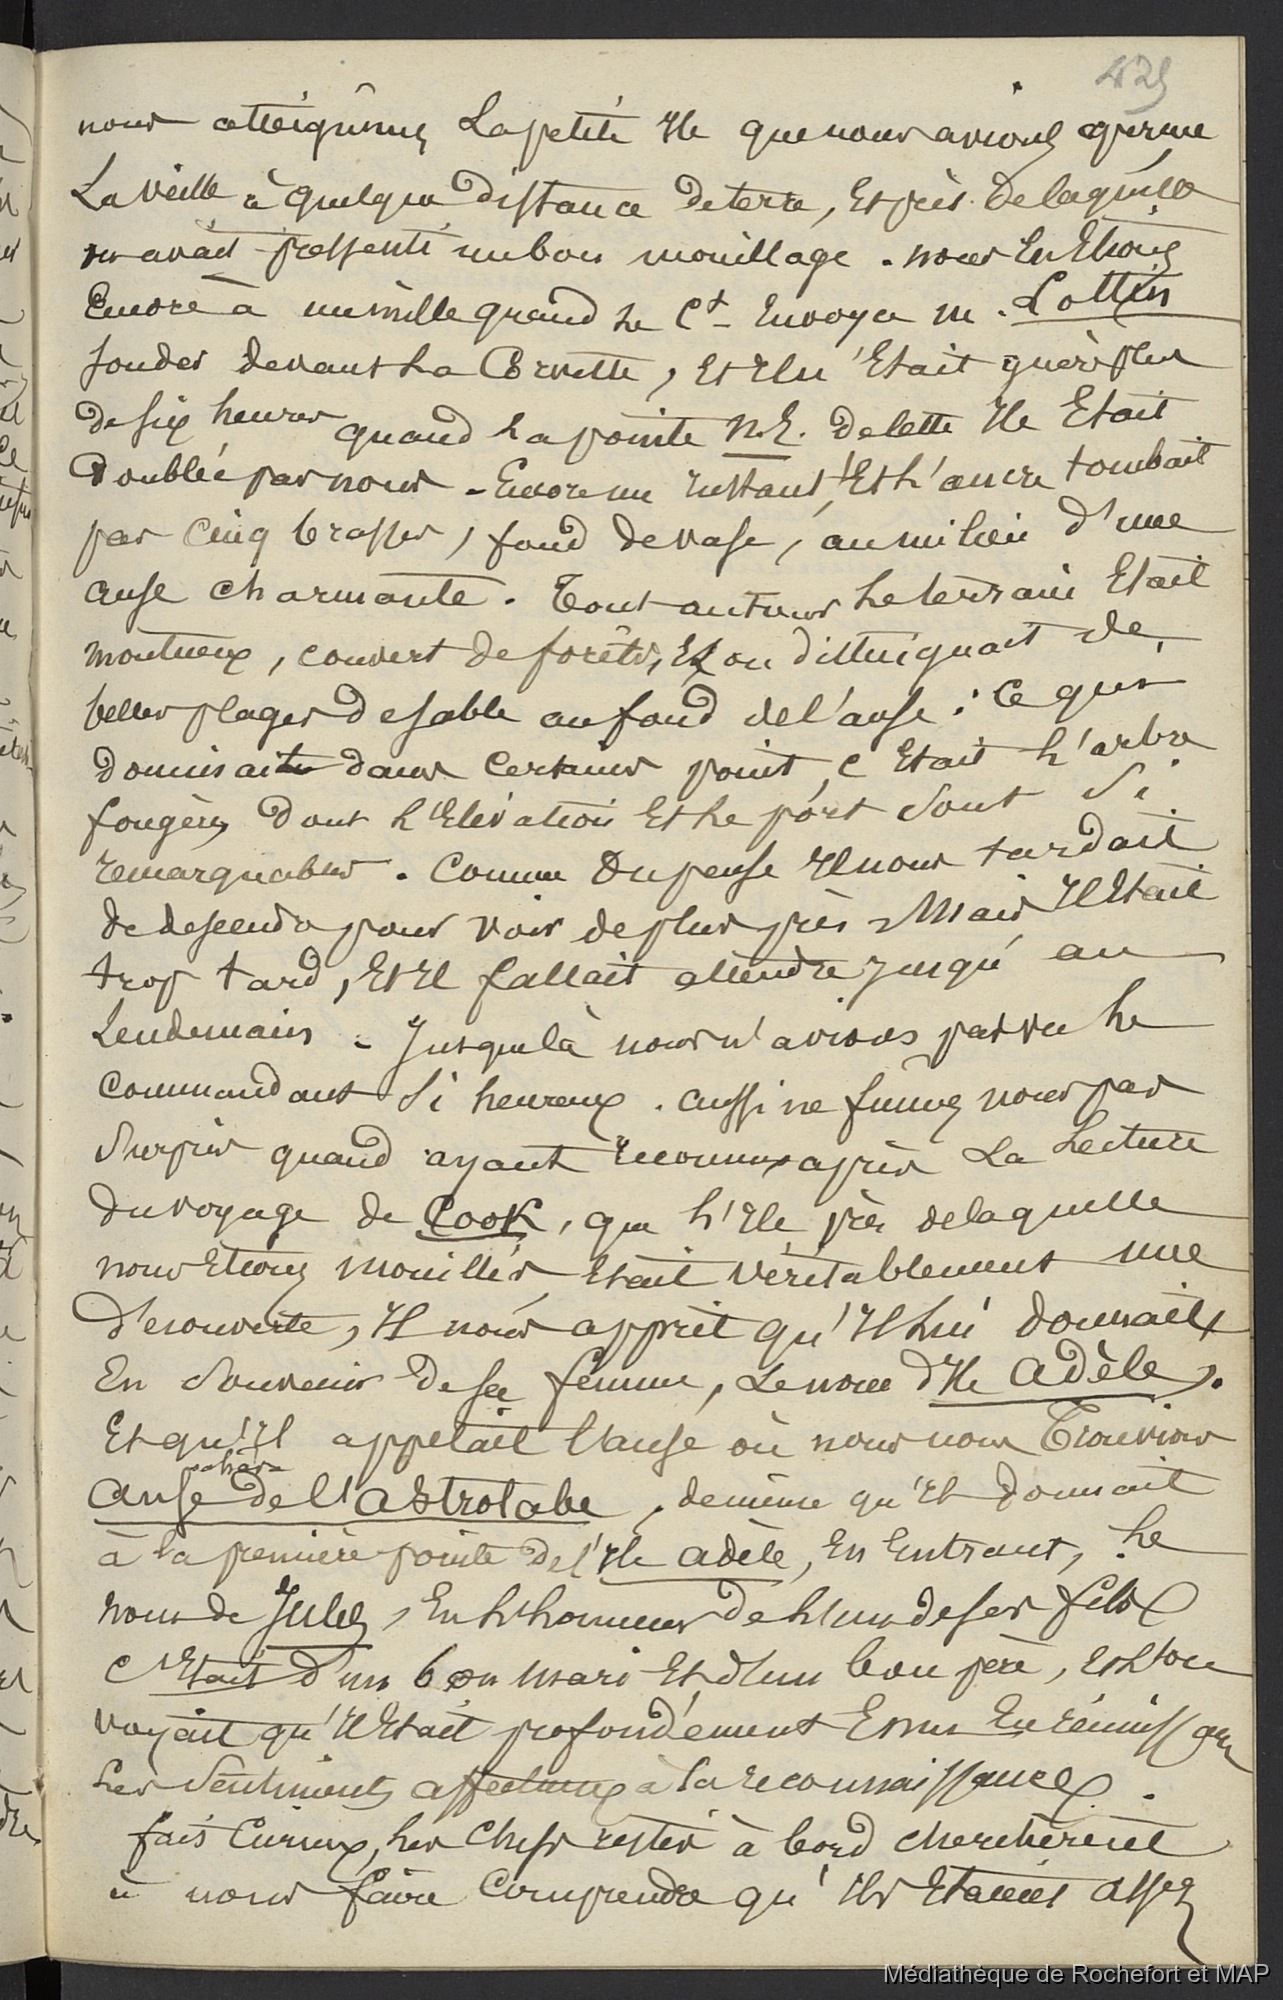 425
nous atteignîmes La petite Ile que nous avions aperçue
La veille à quelque distance de terre, Et près de laquelle
on avait pressenti un bon mouillage. nous En Etions
Encore à un mille quand Le Ct Envoya m. Lottin
sonder devant La Corvette, Et Il n'Etait guère plus
de six heures quand La pointe N.E. de cette Ile Etait
Doublée par nous. Encore un Instant, Et L'ancre tombait
par cinq brasses, fond de vase, au milieu d'une
anse charmante. Tout autour Le terrain Etait
montueux, couvert de forêts, Et on distinguait de
belles plages de sable au fond de l'anse : Ce qui
dominait dans certains point, c'Etait L'arbre
fougère, Dont L'Elévation Et Le port sont si
remarquables. Comme on pense Il nous tardait
de descendre pour voir de plus près. Mais Il Etait
trop tard, Et Il fallait attendre jusqu'au
Lendemain. Jusque là nous n'avions pas vu Le
Commandant si heureux. aussi ne fûmes nous pas
surpris quand ayant reconnu après La Lecture
du voyage de Cook, que L'Ile près de laquelle
nous Etions mouillés Etait véritablement une
découverte, Il nous apprit qu'Il Lui donnait
En souvenir de sa femme, Le nom d'Ile Adèle,
Et qu'Il appelait l'anse où nous nous trouvions
Anse de l'Astrolabe, de même qu'Il donnait
à la première pointe de l'Ile Adèle, En Entrant, Le
nom de Jules, En L'honneur de L'un de ses fils
C'Etait d'un bon mari Et d'un bon père, Et L'on
voyait qu'Il Etait profondément Emu En réunissan
Les sentiments affectueux à la reconnaissance.
fait curieux, Les chefs restés à bord cherchèrent
à nous faire Comprendre qu'Ils Etaient assez
Médiathèque de Rochefort et MAP